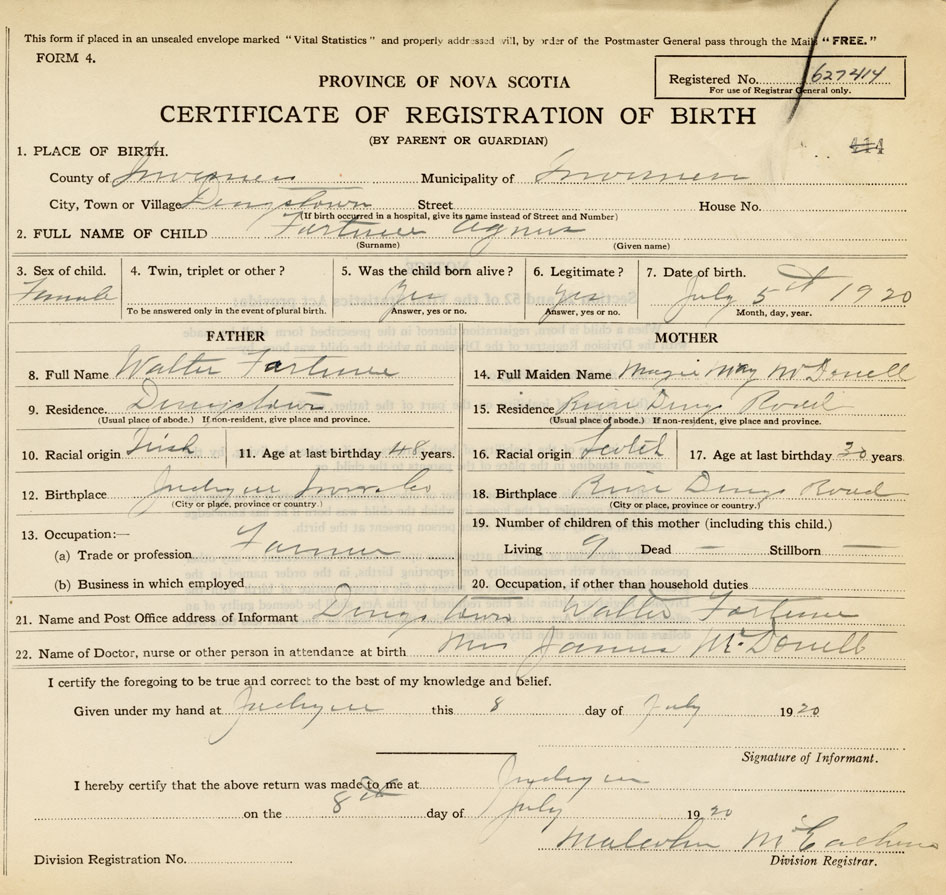 This form if placed in an unsealed envelope marked "Vital Statistics" and properly addressed will, by order of the Postmaster General pass through the Mails "FREE."
FORM 4.
PROVINCE OF NOVA SCOTIA
Registered No. 627414
For use of Registrar General only.
CERTIFICATE OF REGISTRATION OF BIRTH
(BY PARENT OR GUARDIAN)
414
1. PLACE OF BIRTH.
County of Inverness Municipality of Inverness
City, Town or Village Dennystown Street House No.
(If birth occurred in a hospital, give its name instead of Street and Number)
2. FULL NAME OF CHILD Fortune Agnes
(Surname) (Given name)
3. Sex of child. 4. Twin, triplet or other? 5. Was the child born alive? 6. Legitimate? 7. Date of birth.
Female Yes Yes July 5th 1920
To be answered only in the event of plural birth. Answer, yes or no. Answer, yes or no. Month, day, year.
FATHER MOTHER
8. Full Name Walter Fortune 14. Full Maiden Name May McDonell
9. Residence 15. Residence River Denys Road
(Usual place of abode.) If non-resident, give place and province. (Usual place of abode.) If non-resident, give place and province.
10. Racial origin Irish 11. Age at last birthday 48 years. 16. Racial origin Scotch 17. Age at last birthday 30 years.
12. Birthplace Judique 18. Birthplace River Denys Road
(City or place, province or country.) (City or place, province or country.)
13. Occupation:— 19. Number of children of this mother (including this child.)
(a) Trade or profession Farmer Living 9 Dead — Stillborn —
(b) Business in which employed 20. Occupation, if other than household duties
21. Name and Post Office address of Informant Walter Fortune
22. Name of Doctor, nurse or other person in attendance at birth Mrs James McDonell
I certify the foregoing to be true and correct to the best of my knowledge and belief.
Given under my hand at Judique this 8 day of July 1920
Signature of Informant.
I hereby certify that the above return was made to me at Judique
on the 8th day of July 1920
Malcolm McEachern
Division Registration No. Division Registrar.